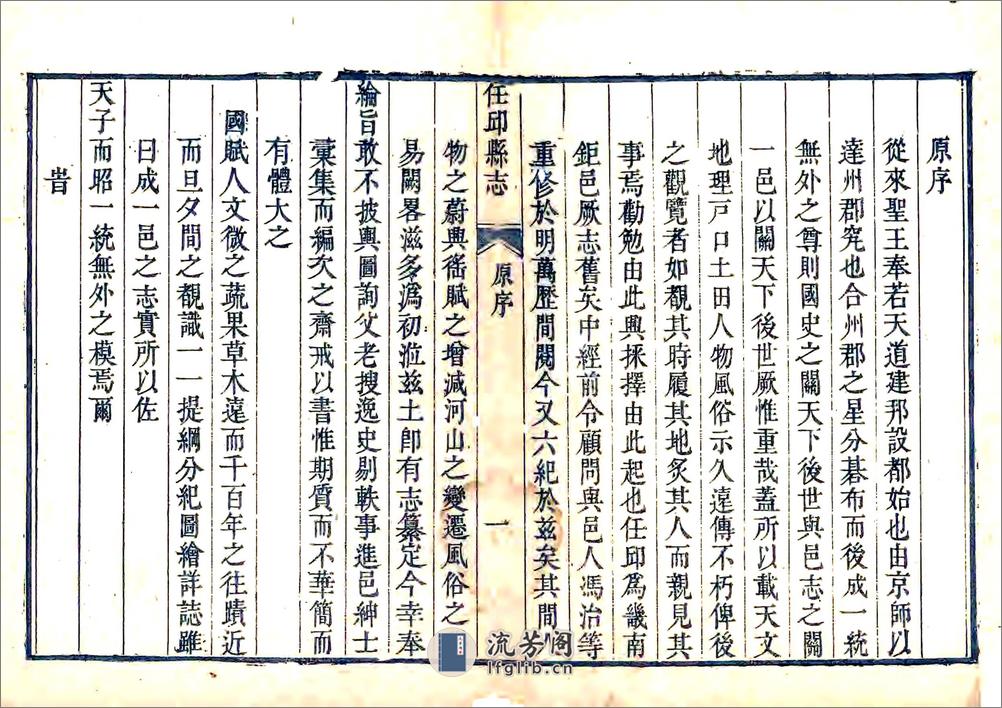 原序
從來聖王奉若天道建邦設都始也由京師以
達州郡究也合州郡之星分碁布而後成一統
無外之尊則國史之關天下後世與邑志之關
一邑以關天下後世厥惟重哉蓋所以載天文
地理戸口土田人物風俗示久遠傳不朽俾後
之觀覽者如覩其時履其地炙其人而親見其
事焉勸勉由此興採擇由此起也任邱爲畿南
鉅邑厥志舊矣中經前令顧問與邑人馮治等
重修於明萬歷間閱今又六紀於兹矣其間人
任邱縣志
原序
一
物之蔚興徭賦之增減河山之變遷風俗之
易闕畧滋多爲初涖兹土卽有志纂定今幸奉
綸旨敢不披輿圖詢父老搜逸史剔軼事進邑紳士
彙集而編次之齋戒以書惟期質而不華簡而
有體大之
國賦人文微之蔬果草木遠而千百年之往蹟近
而旦夕間之覩識一一提綱分紀圖繪詳誌雖
曰成一邑之志實所以佐
天子而昭一統無外之模焉爾
旹
流芳阁
lfglib.cn